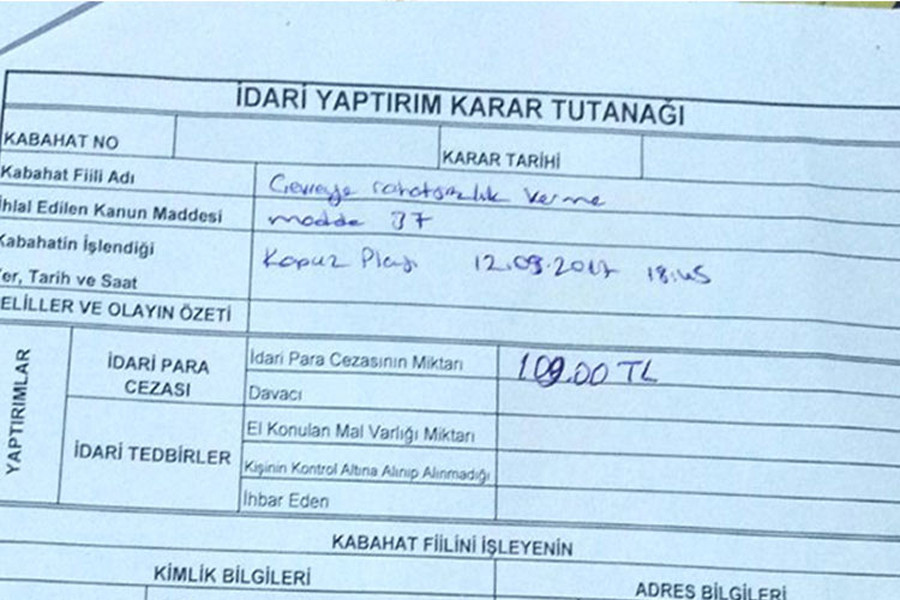 İDARİ YAPTIRIM KARAR TUTANAĞI
KABAHAT NO
KARAR TARİHİ
Kabahat Fiili Adı
Çevreye rahatsızlık verme
İhlal Edilen Kanun Maddesi
madde 37
Kabahatin İşlendiği
Yer, Tarih ve Saat
Kapuz Plajı 12.09.2017 18:45
DELİLLER VE OLAYIN ÖZETİ
YAPTIRIMLAR
İDARİ PARA
CEZASI
İdari Para Cezasının Miktarı
109.00 TL
Davacı
İDARİ TEDBİRLER
El Konulan Mal Varlığı Miktarı
Kişinin Kontrol Altına Alınıp Alınmadığı
İhbar Eden
KABAHAT FİİLİNİ İŞLEYENİN
KİMLİK BİLGİLERİ
ADRES BİLGİLERİ